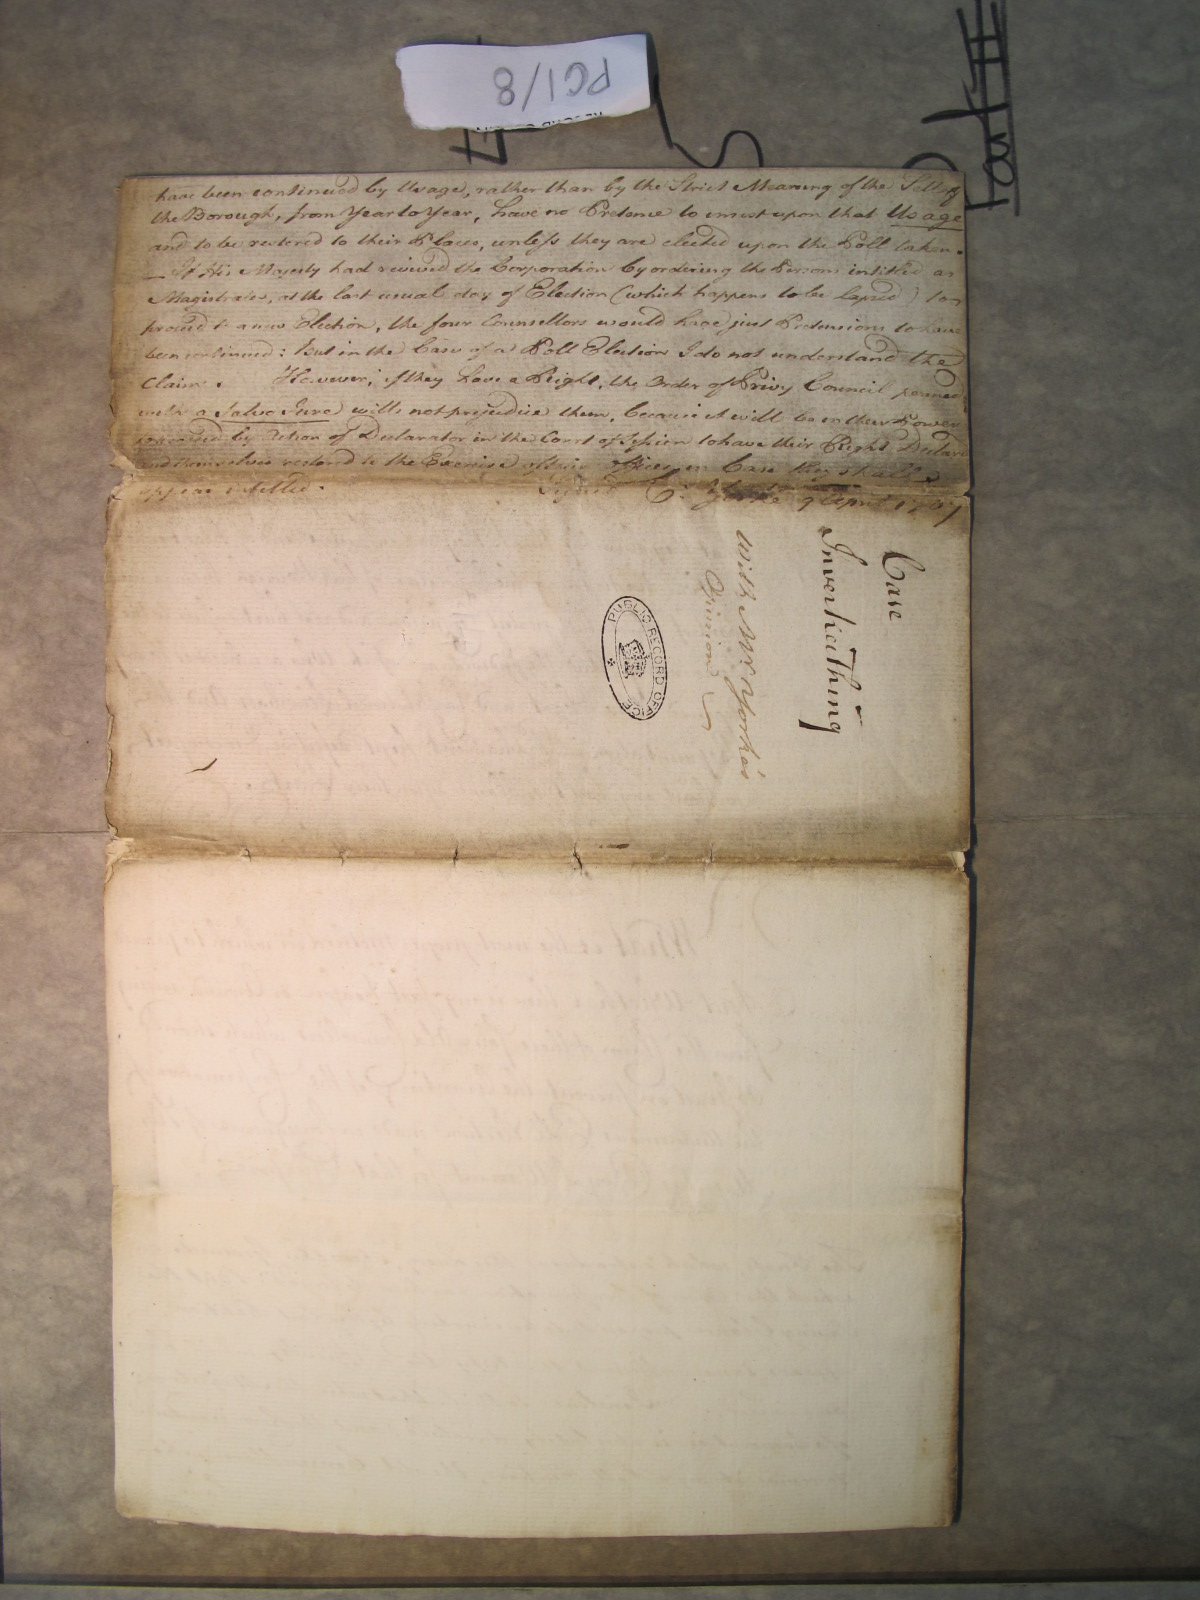 PC1/8
have been continued by Usage, rather than by the Strict Meaning of the Sett of
the Borough, from Year to Year, have no Pretence to insist upon that Usage
and to be restored to their Places, unless they are elected upon the Poll taken.
If His Majesty had revived the Corporation by ordering the Persons intitled as
Magistrates, at the last usual day of Election (which happens to be lapsed) to
proceed to a new Election, the four Counsellors would have just Pretensions to have
been continued: But in the Case of a Poll Election I do not understand the
Claim. However, if they have a Right, the Order of Privy Council penned
with a Salvo Jure will not prejudice them, because it will be in their Power
by Action of Declarator in the Court of Session to have their Right Declared
and themselves restored to the Exercise of their Offices in Case they shall
appear intitled. Signed C: Yorke 9 April
Case
Inverkeithing
With Mr. Yorke's
Opinion
PUBLIC RECORD OFFICE